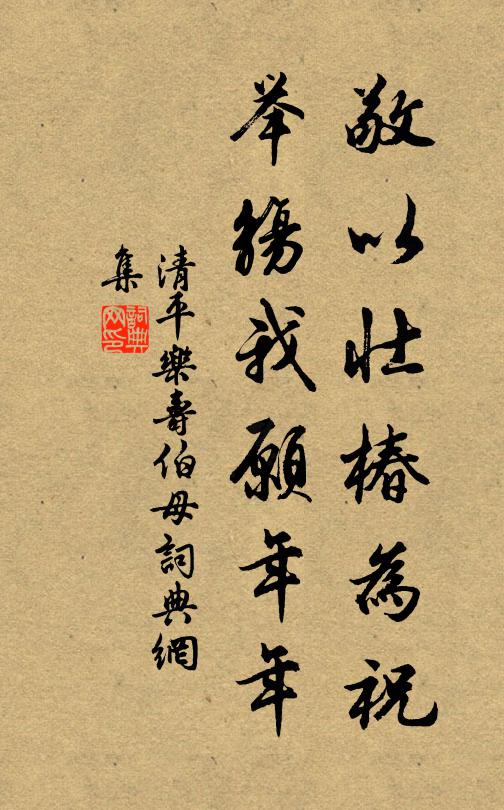 敬以壯椿為祝
举觴我願年年
清平樂壽伯母詞典網
集
詞典
网印